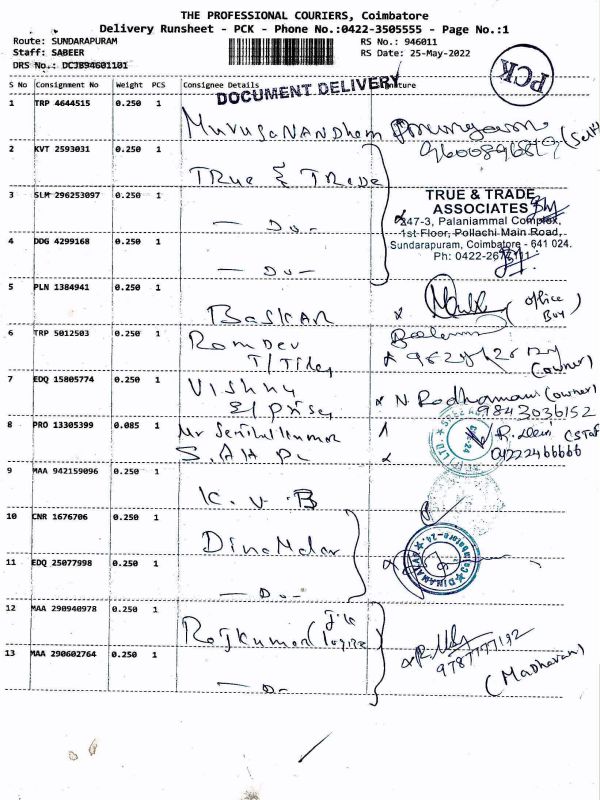 THE PROFESSIONAL COURIERS, Coimbatore
Delivery Runsheet - PCK - Phone No.:0422-3505555 - Page No.:1
Route: SUNDARAPURAM RS No.: 946011
Staff: SABEER RS Date: 25-May-2022
DRS No.: DCJB94601101
PCK
S No Consignment No Weight PCS Consignee Details Signature
DOCUMENT DELIVERY
1 TRP 4644515 0.250 1
MURUGANANDHAM (Self)
2 KVT 2593031 0.250 1
TRUE & TRADE
3 SLM 296253097 0.250 1
- Do -
TRUE & TRADE
ASSOCIATES
247-3, Palaniammal Complex,
1st Floor, Pollachi Main Road,
Sundarapuram, Coimbatore - 641 024.
Ph: 0422-267
4 DDG 4299168 0.250 1
- Do -
5 PLN 1384941 0.250 1
BASKAR (office Boy)
6 TRP 5012503 0.250 1
Ramdev
T/Tiles (owner)
7 EDQ 15805774 0.250 1
Vishnu N Radhamani (owner)
E/prises 9843036152
8 PRO 13305399 0.085 1
Mr Senthilkumar R. Devi (Staff
S.A.H PL 04222466666
9 MAA 942159096 0.250 1
K.V.B
10 CNR 1676706 0.250 1
DinaMalar
11 EDQ 25077998 0.250 1
- Do -
DINAMALAR
Coimbatore-24
12 MAA 290940978 0.250 1
Rajkumar
9787777132
13 MAA 290602764 0.250 1
- Do - (Madhavan)